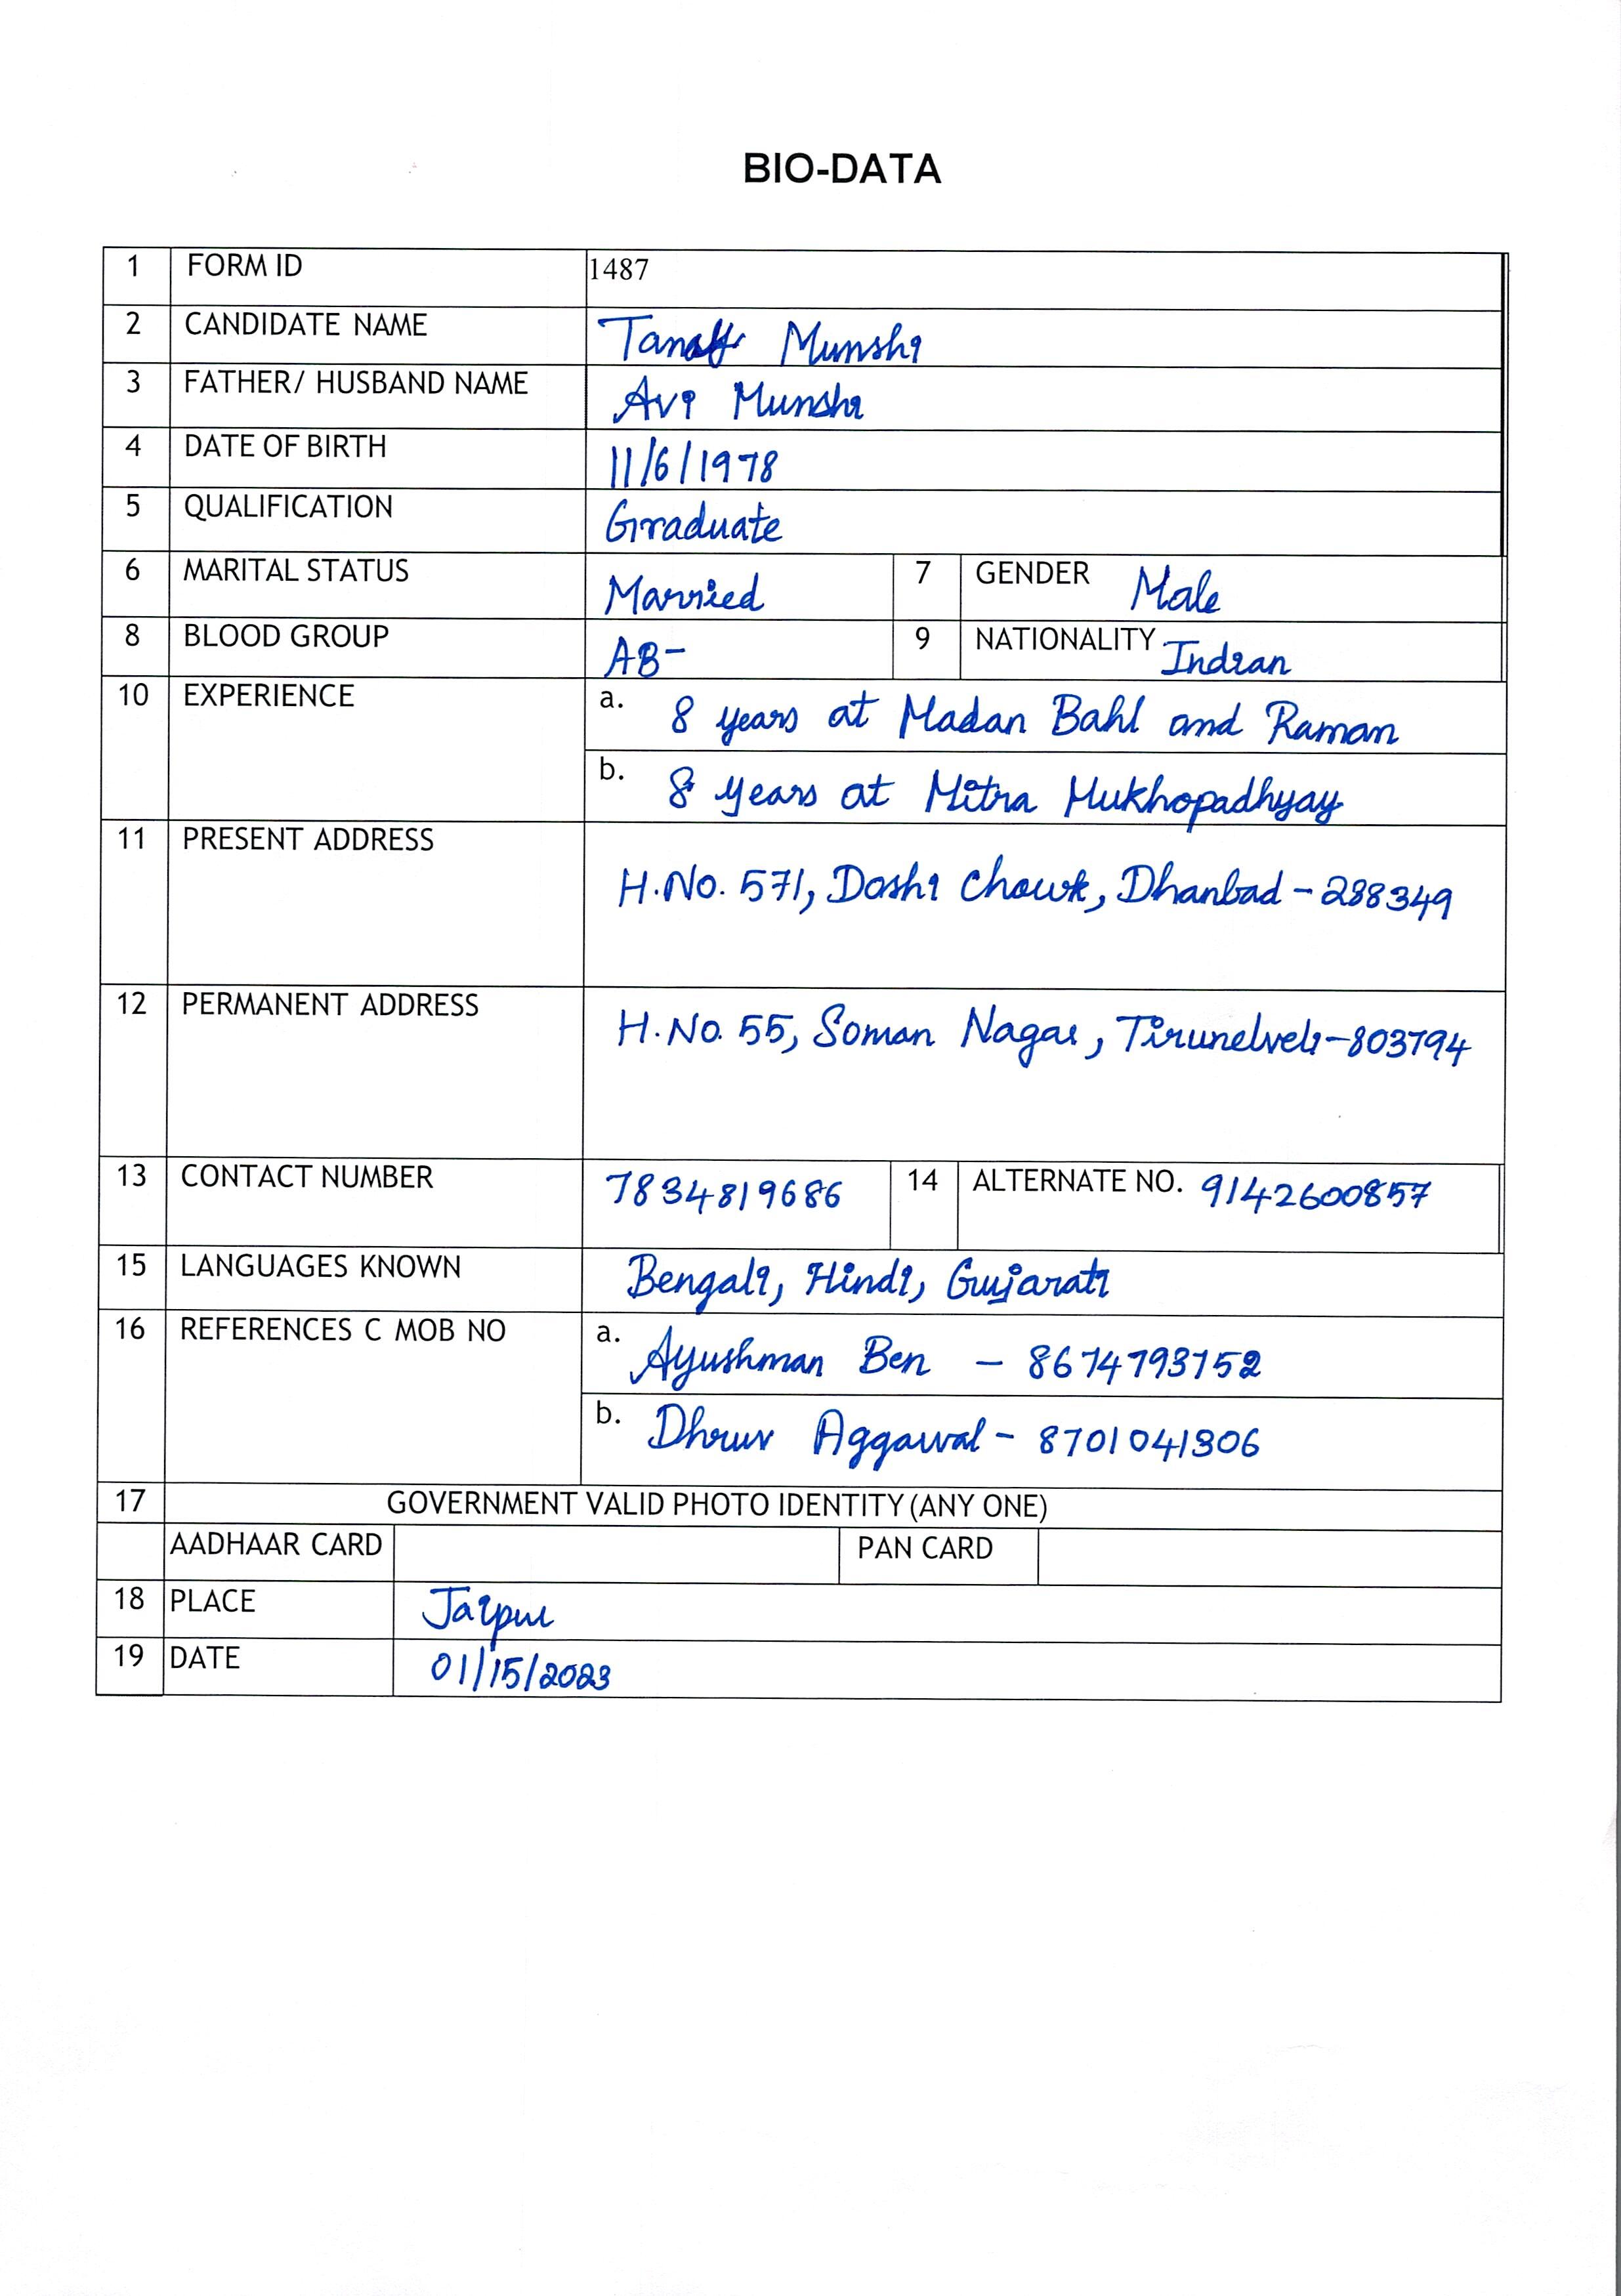 BIO-DATA
1 FORM ID 1487
2 CANDIDATE NAME Munshi
3 FATHER/ HUSBAND NAME Avi Munshi
4 DATE OF BIRTH 11/6/1978
5 QUALIFICATION Graduate
6 MARITAL STATUS Married 7 GENDER Male
8 BLOOD GROUP AB- 9 NATIONALITY Indian
10 EXPERIENCE a. 8 years at Madan Bahl and Raman
b. 8 years at Mitra Mukhopadhyay
11 PRESENT ADDRESS H.No. 571, Doshi Chowk, Dhanbad - 288349
12 PERMANENT ADDRESS H.No. 55, Soman Nagar, Tirunelveli-803794
13 CONTACT NUMBER 7834819686 14 ALTERNATE NO. 9142600857
15 LANGUAGES KNOWN Bengali, Hindi, Gujarati
16 REFERENCES C MOB NO a. Ayushman Ben - 8674793752
b. Dhruv Aggarwal - 8701041306
17 GOVERNMENT VALID PHOTO IDENTITY (ANY ONE)
AADHAAR CARD PAN CARD
18 PLACE Jaipur
19 DATE 01/15/2023